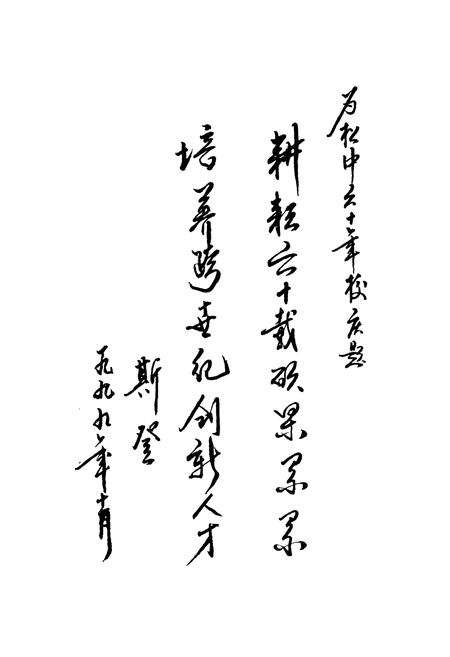 为松中六十年校庆题
耕耘六十载硕果累累
培养跨世纪创新人才
斯登
一九九九年十月